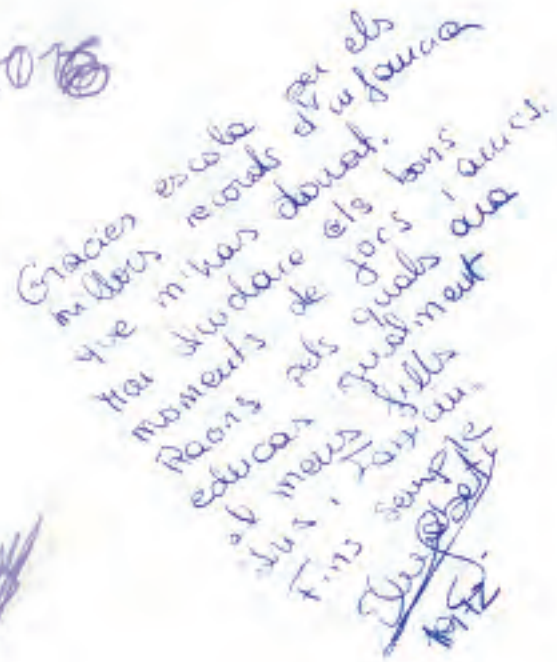 Gràcies escola per els
millors records d'infancia
que m'has donat.
Mai oblidare els bons
moments de jocs i amics.
Raons pels quals ara
educas igualment
al meus fills
Fins sempre